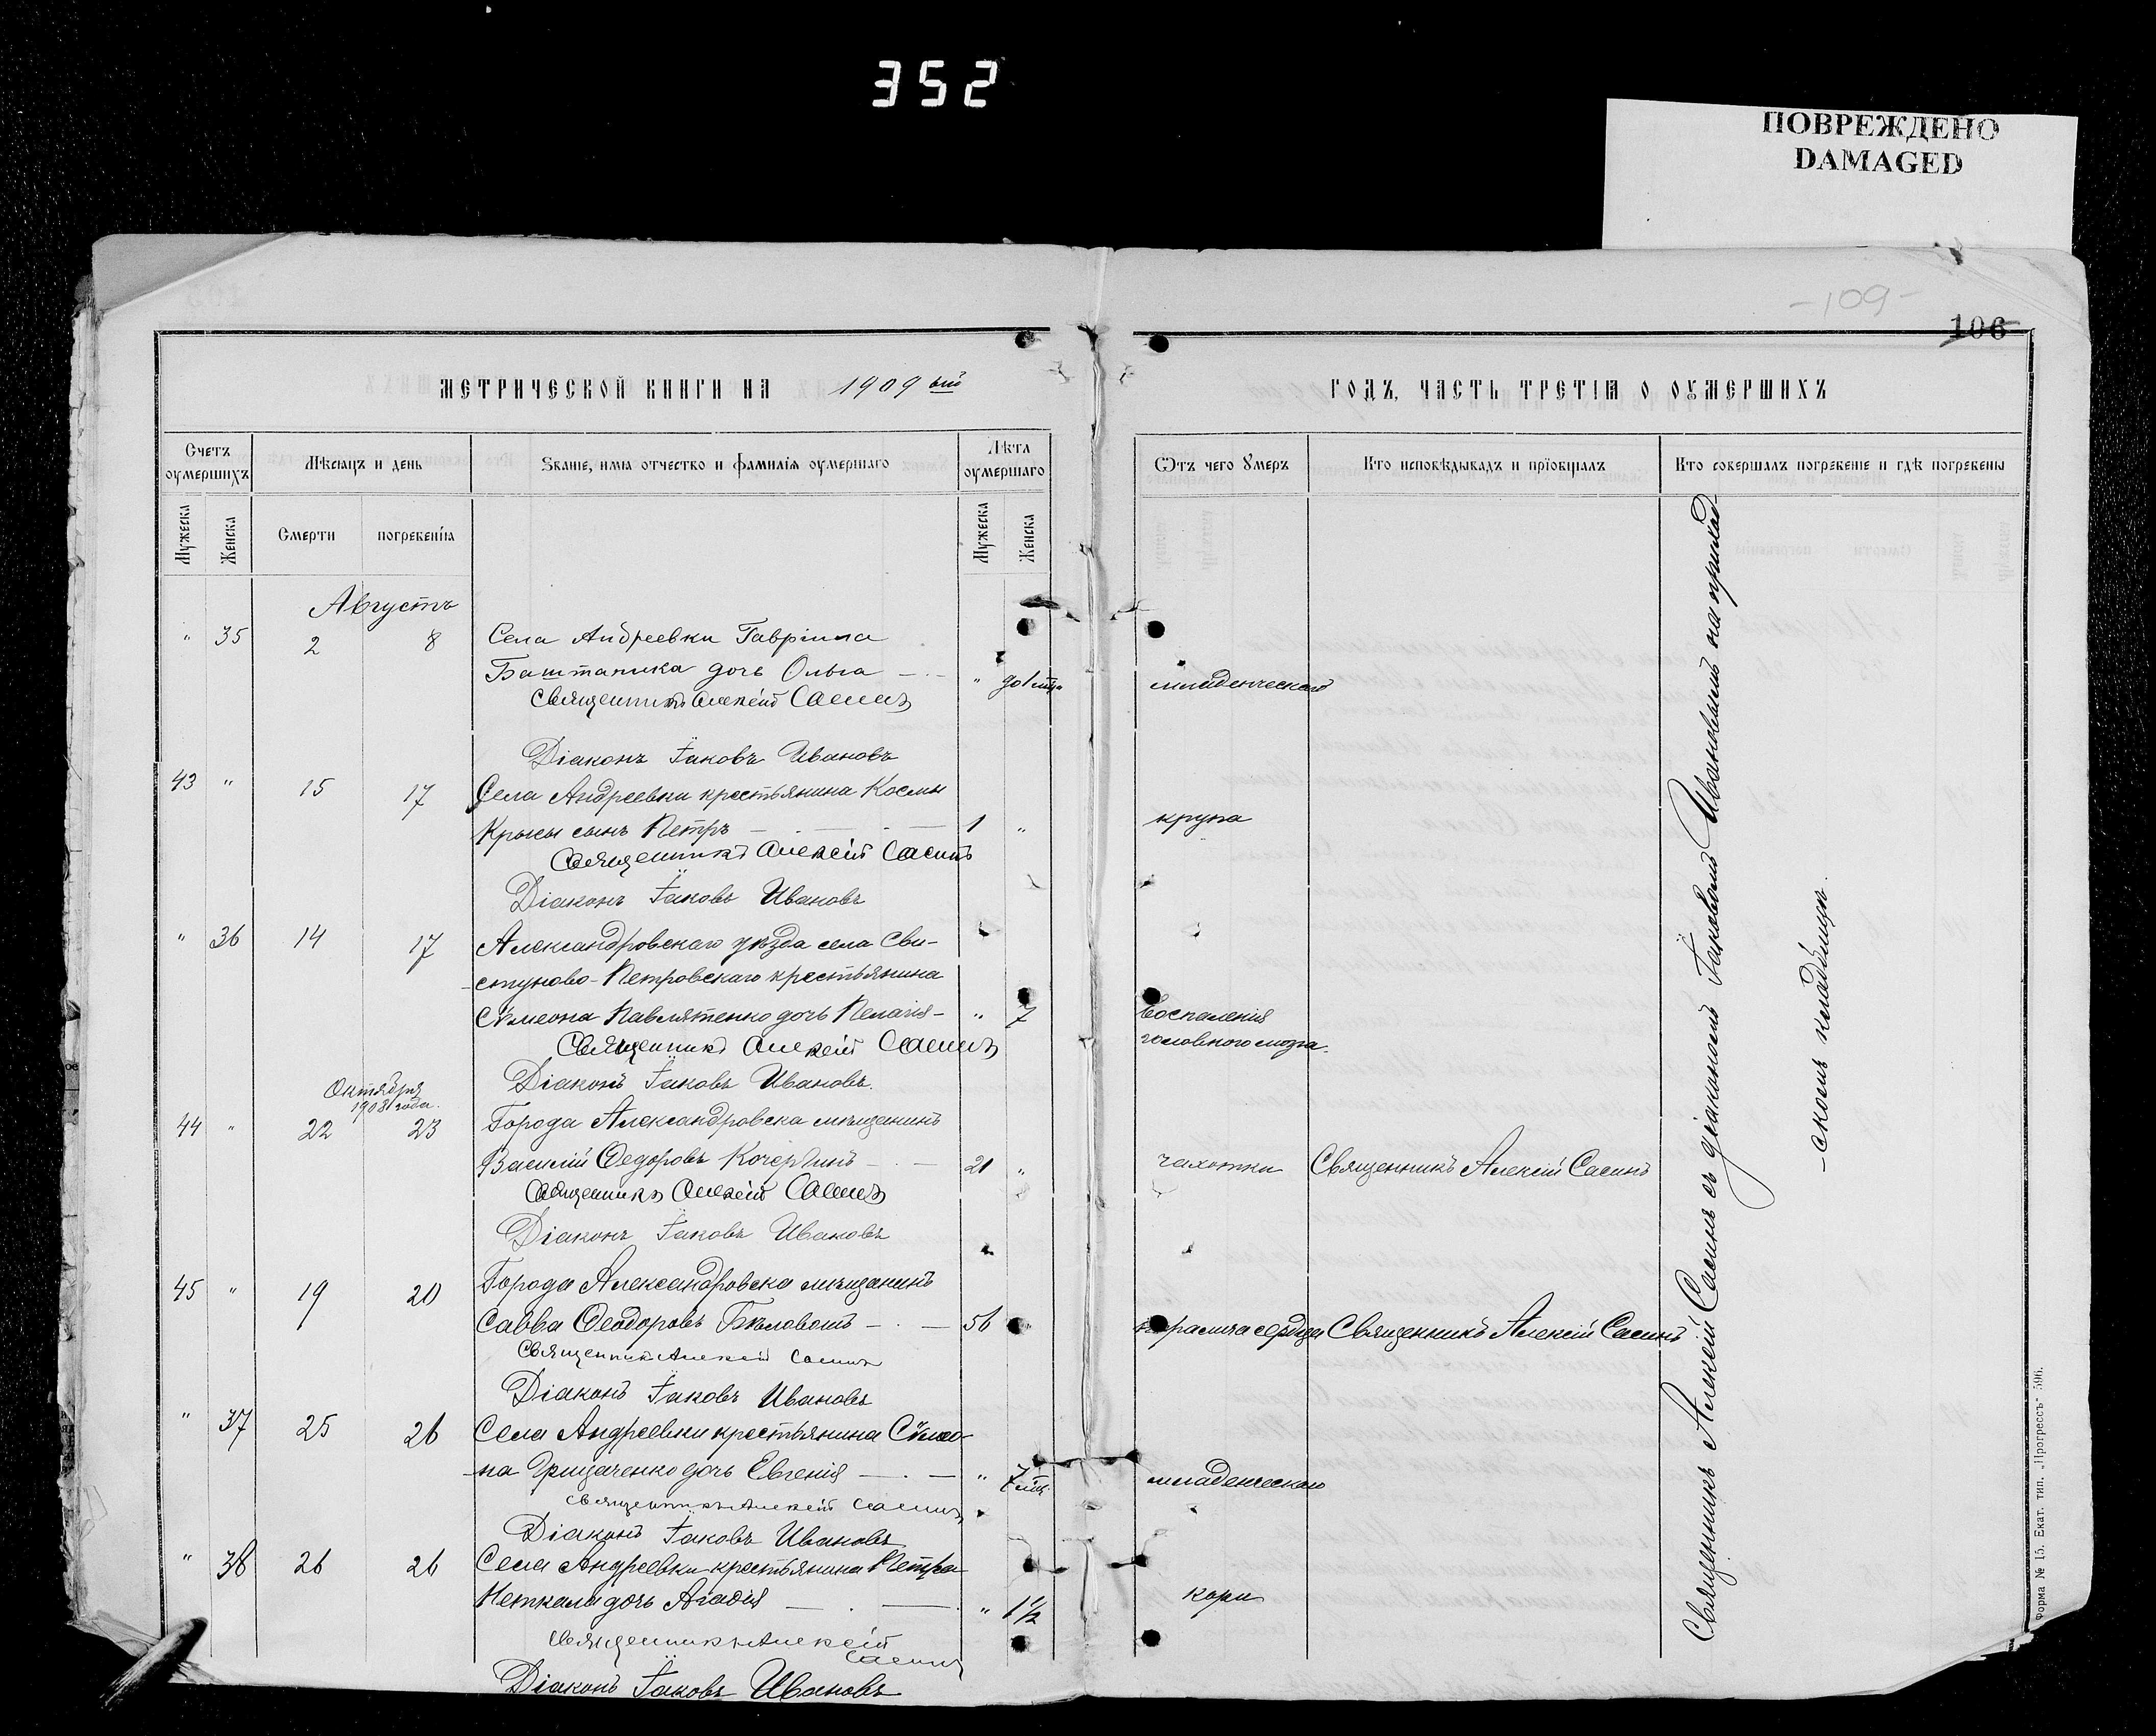 352
ПОВРЕЖДЕНО
DAMAGED
-109-
106
МЕТРИЧЕСКОЙ КНИГИ НА 1909 ый
ГОДЪ, ЧАСТЬ ТРЕТІЯ О ОУМЕРШИХЪ
Счетъ оумершихъ
Мѣсяцъ и день
Званіе, имя отчество и фамилія оумершаго
Лѣта оумершаго
Отъ чего умеръ
Кто исповѣдывалъ и пріобщалъ
Кто совершалъ погребеніе и гдѣ погребены
Мужеска
Женска
Смерти
погребенія
Мужеска
Женска
Августъ
" 35 2 8 Села Андреевки Гавріила
Баштаника дочь Ольга " до 1 мца младенческаго
Священникъ Алексій Сасинъ
Діаконъ Іаковъ Ивановъ
43 " 15 17 Села Андреевки крестьянина Космы
Крысы сынъ Петръ 1 " крупа
Священникъ Алексій Сасинъ
Діаконъ Іаковъ Ивановъ
" 36 14 17 Александровскаго уѣзда села Сви-
стуново-Петровскаго крестьянина
Сѵмеона Павлятенко дочь Пелагія - " 7 воспаленія
головного мозга.
Священникъ Алексій Сасинъ
Діаконъ Іаковъ Ивановъ.
Октября
1908 года.
44 " 22 23 Города Александровска мѣщанинъ
Василій Федоровъ Кочергинъ 21 " чахотки Священникъ Алексій Сасинъ
Священникъ Алексій Сасинъ
Діаконъ Іаковъ Ивановъ
45 " 19 20 Города Александровска мѣщанинъ
Савва Феодоровъ Бѣловолъ 56 паралича сердца Священникъ Алексій Сасинъ
Священникъ Алексій Сасинъ
Діаконъ Іаковъ Ивановъ
" 37 25 26 Села Андреевки крестьянина Сѵмео-
-на Грищаченко дочь Евгенія " 7 мц. младенческаго
Священникъ Алексій Сасинъ
Діаконъ Іаковъ Ивановъ
" 38 26 26 Села Андреевки крестьянина Петра
Неткали дочь Агафія " 1½ кори
Священникъ Алексій
Сасинъ
Діаконъ Іаковъ Ивановъ
Священникъ Алексій Сасинъ съ діакономъ Іаковомъ Ивановымъ на приход-
-скомъ кладбищѣ.
Форма № 15. Екат. тип. „Прогрессъ" 596.